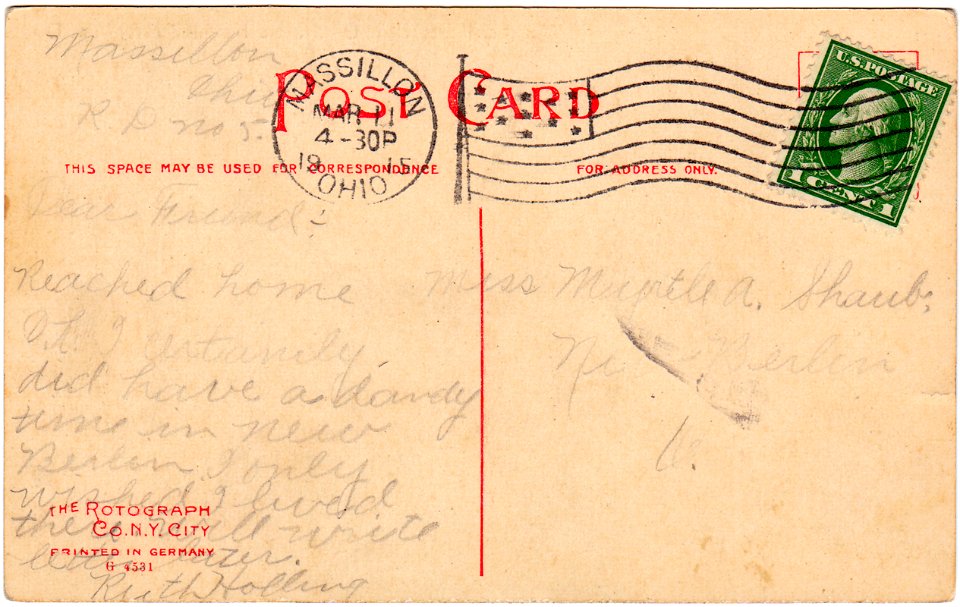 Massillon
Ohio
R D no 5.
POST CARD
MASSILLON
MAR 11
4-30P
1915
OHIO
U.S. POSTAGE
1 CENT 1
THIS SPACE MAY BE USED FOR CORRESPONDENCE
FOR ADDRESS ONLY.
Dear Friend:-
Reached home
O.K. I certainly
did have a dandy
time in new
Berlin I only
wished I lived
there will write
later.
Ruth Holling
Miss Myrtle A. Shaub,
New Berlin
O.
THE ROTOGRAPH
CO. N.Y. CITY
PRINTED IN GERMANY
G 4531